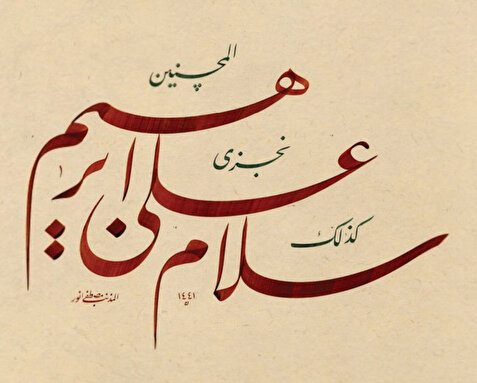 سلام
على
ابرهيم
كذلك
نجزى
المحسنين
١٤٤١
المذنب مصطفى انور